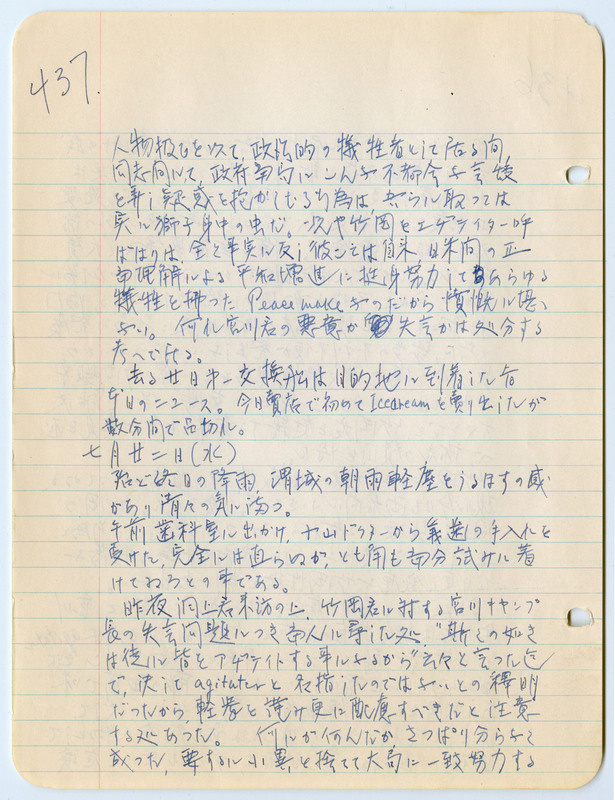 437.
人物扱ひを以て、政治的の犠牲者として居る間、
同志間にて、政府争ひにこんな不都合な言
を弄し疑惑を抱かしむる行為は、吾らに取つては
実に獅子身中の虫だ。次や竹岡をエヂテイター呼
ばはりは、全く事実に反し彼こそは自来、日米間の正
当理解による平和増進に挺身努力してあらゆる
犠牲を拂つた Peace make なのだから憤慨に堪
ない。何れ宮川君の悪意か失言かは処分する
考へで居る。
去る廿日第一交換船は目的地に到着した旨
本日のニュース。今日賣店で初めて Icecream を賣り出したが
数分間で品切れ。
七月廿二日(水)
殆ど終日の降雨、渭城の朝雨軽塵をうるほすの感
があり清々の気に満つ。
午前歯科室に出かけ、ドクターから義歯の手入れを
受けた、完全には直らぬが、とも角も当分試みに着
けてみろとの事である。
昨夜洞上君来訪の上、竹岡君に対する宮川キャンプ
長の失言問題につき本人に尋した処、"斯くの如き
は徒に皆をアヂテイトする事になるから"云々と言つた迄
で、決して agitater と名指したのではないとの釋明
だつたから、軽挙を慎み更に配慮すべきだと注意
する処あつた。何にが何んだか、さつぱり分らなく
成つた、要するに小異を捨てて大局に一致努力する